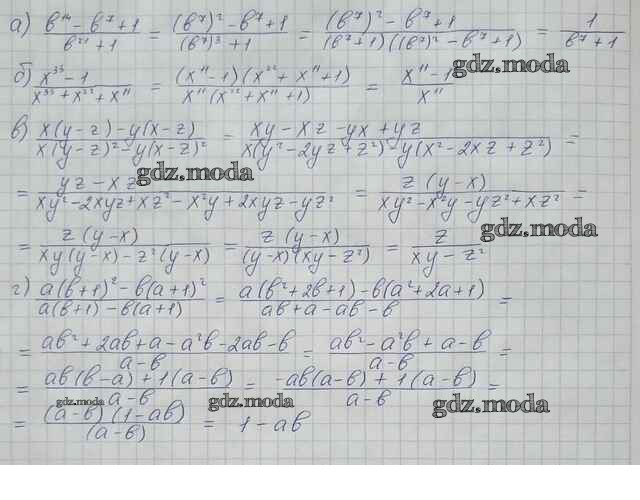 а) (b¹⁴ - b⁷ + 1)/(b²¹ + 1) = ((b⁷)² - b⁷ + 1)/((b⁷)³ + 1) = ((b⁷)² - b⁷ + 1)/((b⁷+1)((b⁷)² - b⁷ + 1)) = 1/(b⁷ + 1)
gdz.moda
б) (x³³ - 1)/(x³³ + x²² + x¹¹) = ((x¹¹ - 1)(x²² + x¹¹ + 1))/(x¹¹(x²² + x¹¹ + 1)) = (x¹¹ - 1)/x¹¹
в) (x(y-z) - y(x-z))/(x(y-z)² - y(x-z)²) = (xy - xz - yx + yz)/(x(y² - 2yz + z²) - y(x² - 2xz + z²)) =
gdz.moda
= (yz - xz)/(xy² - 2xyz + xz² - x²y + 2xyz - yz²) = (z(y-x))/(xy² - x²y - yz² + xz²) =
gdz.moda
= (z(y-x))/(xy(y-x) - z²(y-x)) = (z(y-x))/((y-x)(xy-z²)) = z/(xy - z²)
г) (a(b+1)² - b(a+1)²)/(a(b+1) - b(a+1)) = (a(b²+2b+1) - b(a²+2a+1))/(ab + a - ab - b) =
= (ab² + 2ab + a - a²b - 2ab - b)/(a-b) = (ab² - a²b + a - b)/(a-b) =
= (ab(b-a) + 1(a-b))/(a-b) = (-ab(a-b) + 1(a-b))/(a-b) =
gdz.moda gdz.moda gdz.moda
= ((a-b)(1-ab))/(a-b) = 1 - ab